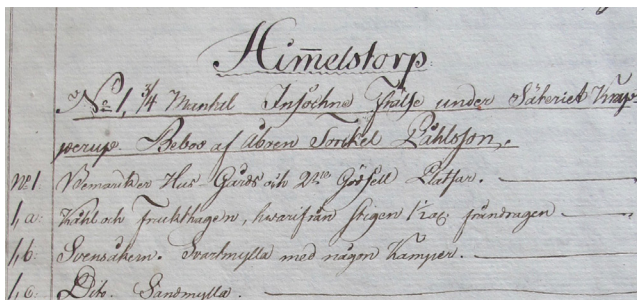 Him̄elstorp.
No 1, 3/4 Mantal Insöchne Frälse under Säteriet Krap
perup. Beboes af Åbren Torkel Påhlsson.
No 1. Hus-Gårds och 2ne Gödsell Platsar.
1, a. Kåhl och Fruckthagen, hwarifrån stigen är fråndragen
1, b. Svensåkern. Svartmylla med någon Kamper.
1, c. Dito. Sandmylla.